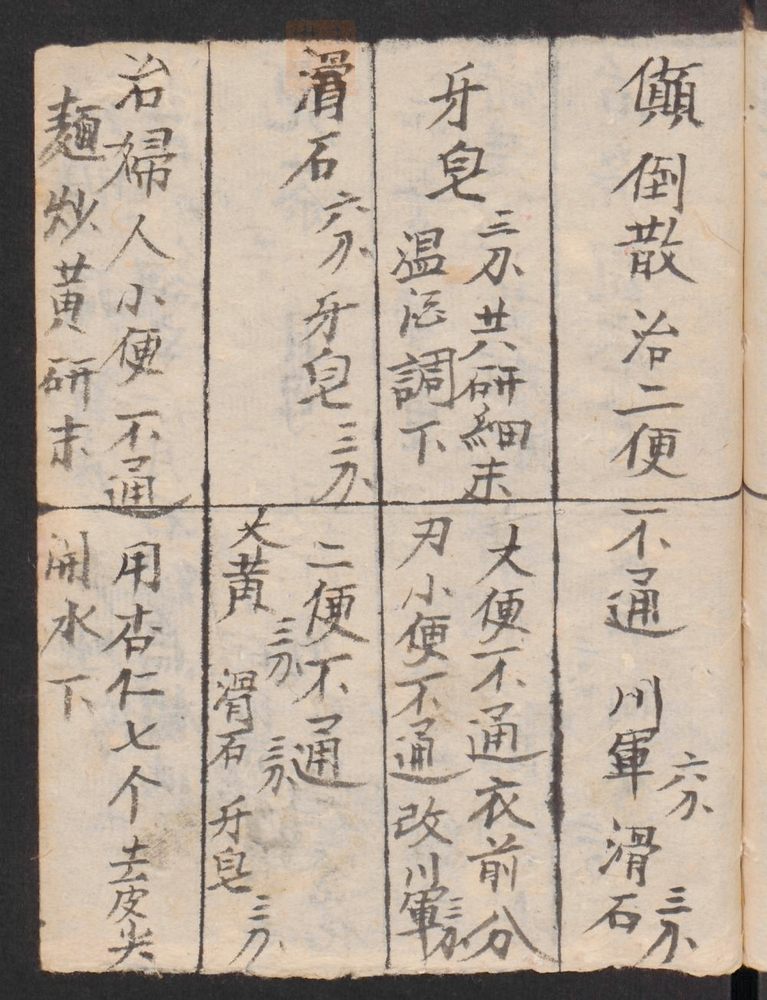 顛倒散 治二便不通 川軍六分 滑石三分
牙皂三分共研細末
温酒調下
大便不通衣前分
刃小便不通改川軍三分
滑石六分牙皂三分
二便不通
大黃三分 滑石三分 牙皂三分
治婦人小便不通用杏仁七个去皮尖
麵炒黃研末開水下